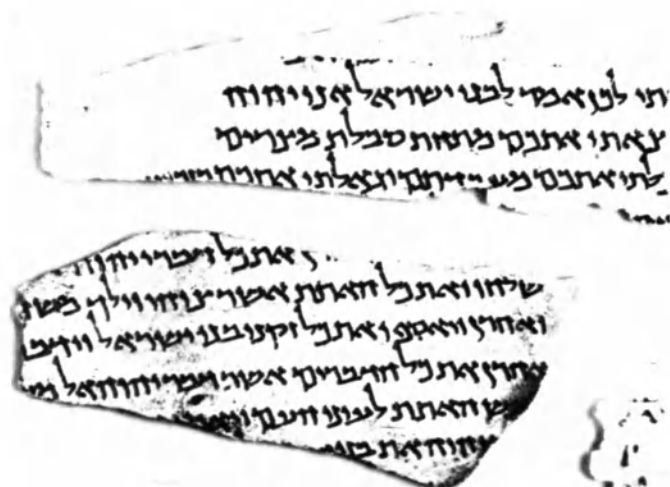 תי לכן אמר לבני ישראל אני יהוה
צאתי אתכם מתחת סבלת מצרים
לתי אתכם מעבדתם וגאלתי אתכם
את כל דברי יהוה
שלחו ואת כל האתת אשר צוהו וילך משה
ואהרן ויאספו את כל זקני בני ישראל וידבר
אהרן את כל הדברים אשר דבר יהוה אל מש
ש האתת לעיני העם
יהוה את בני